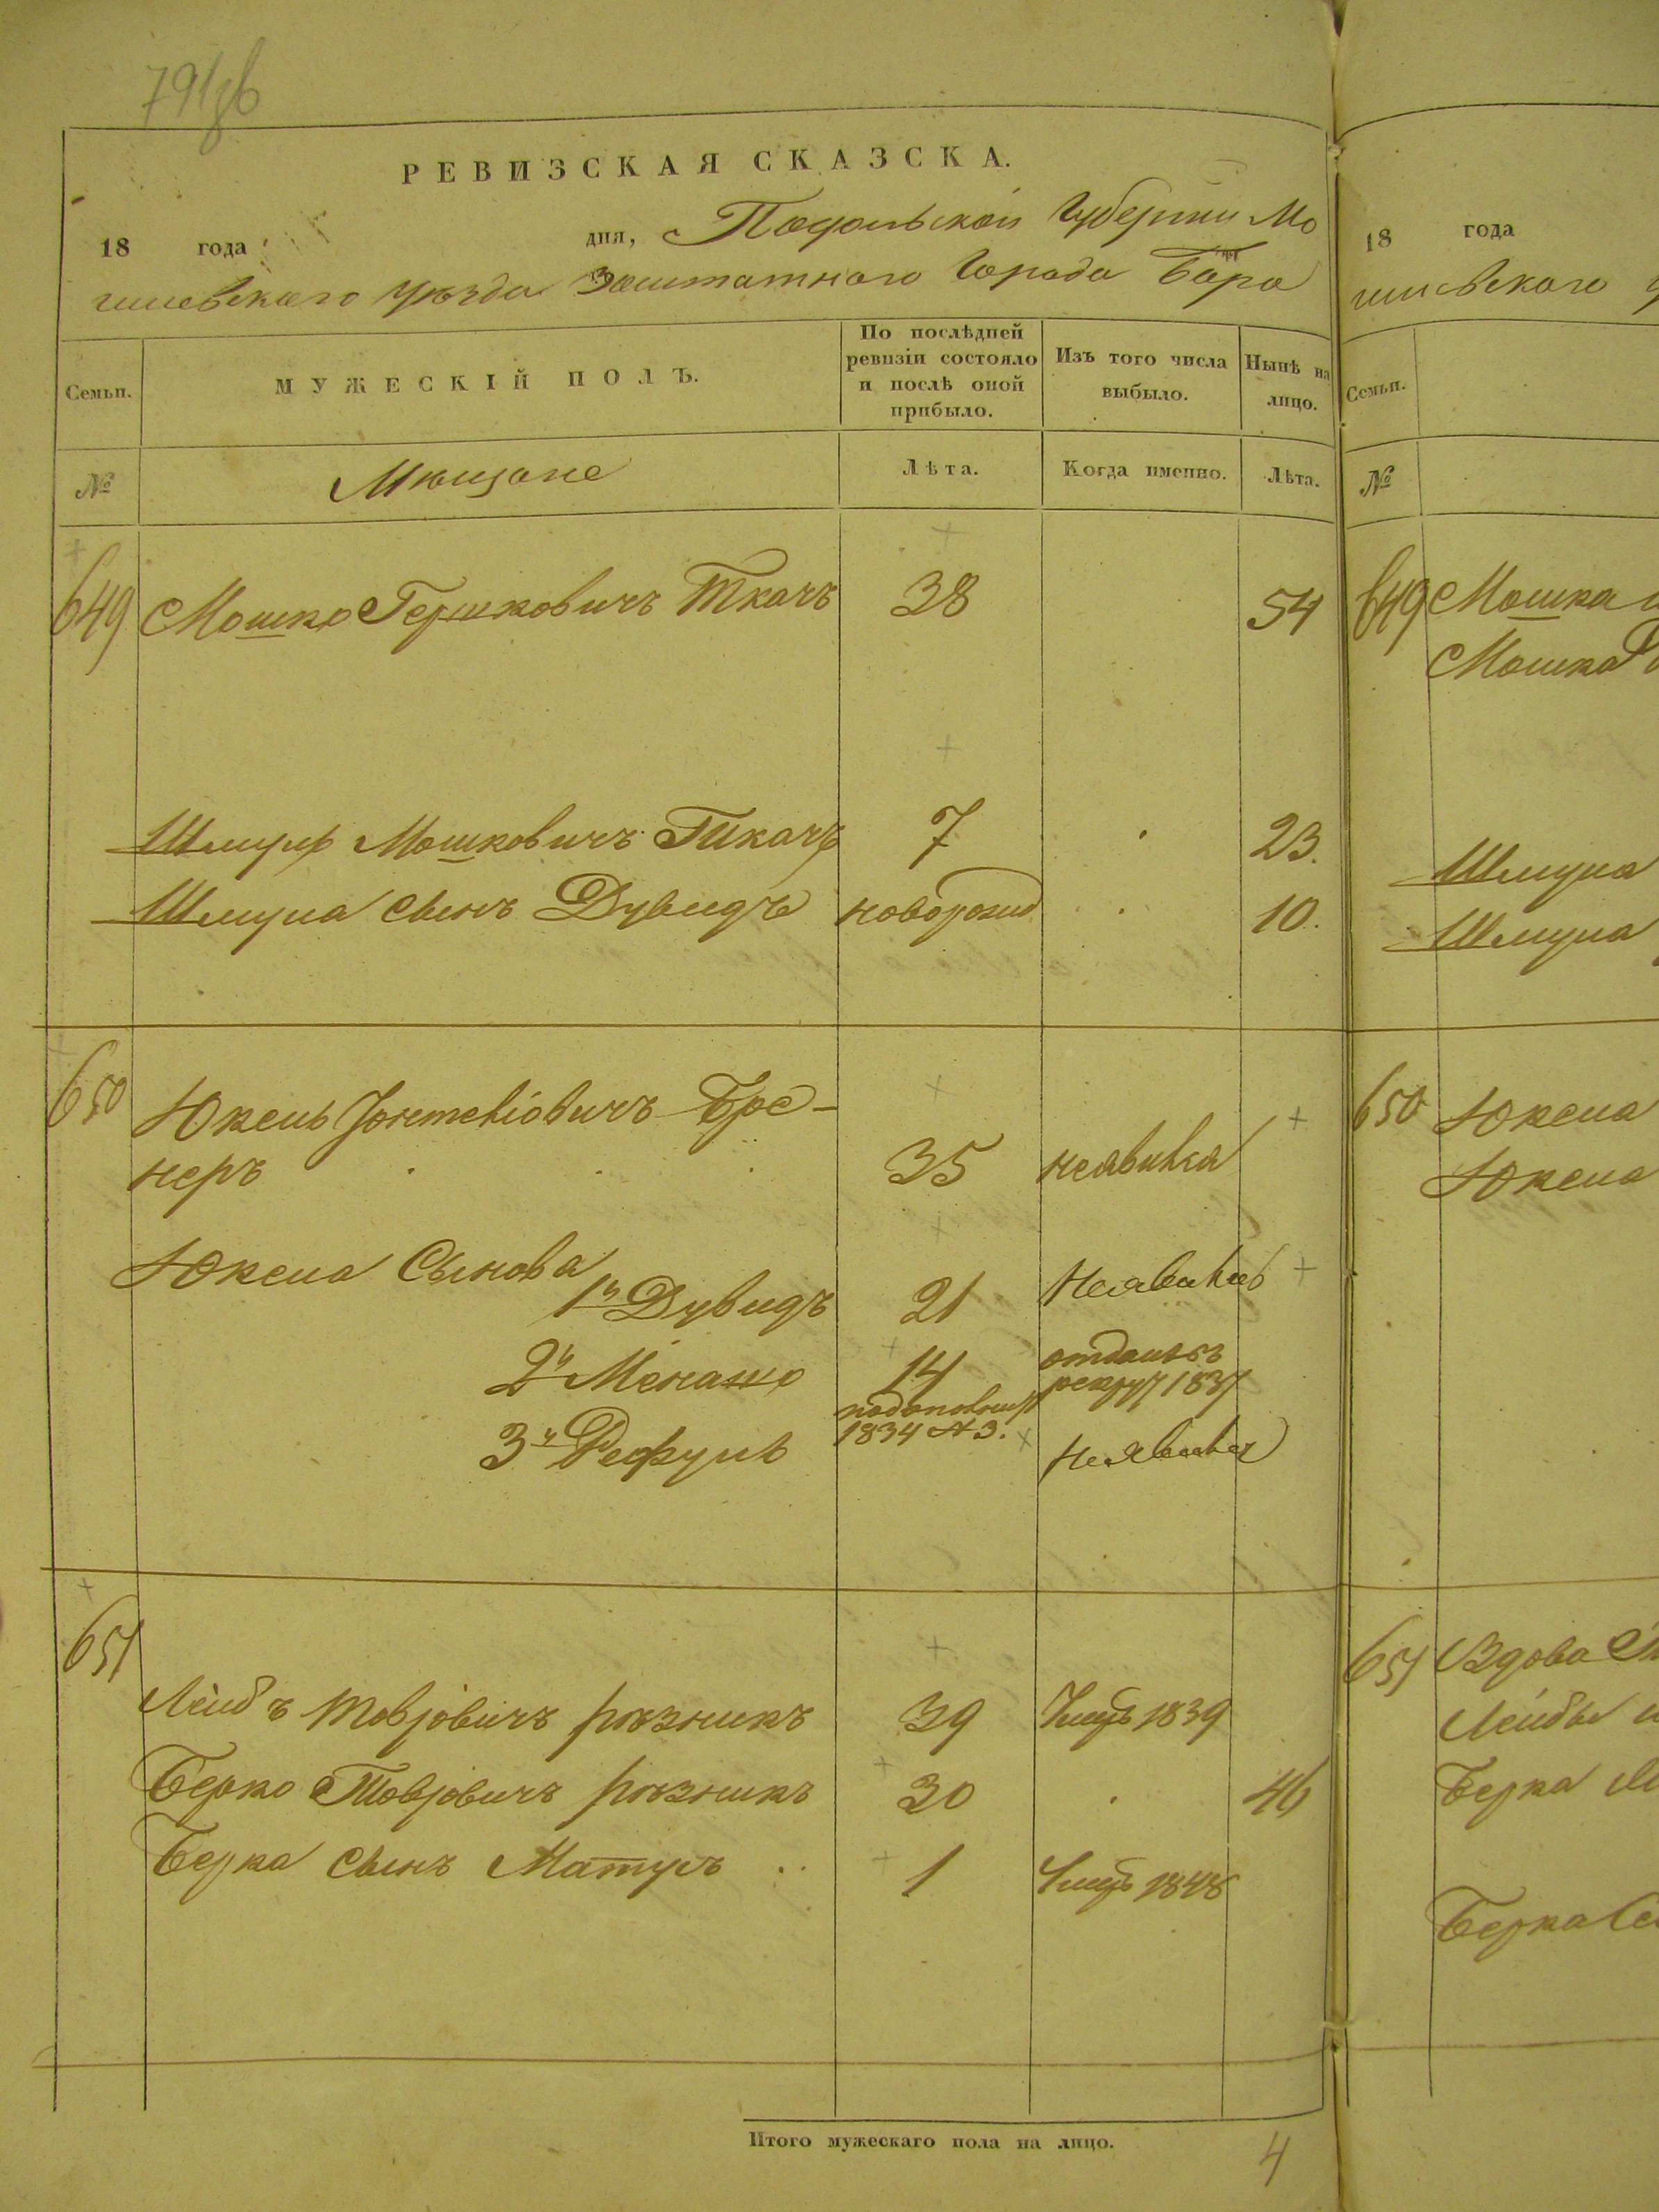 РЕВИЗСКАЯ СКАЗСКА.
18 года дня, Подольской Губернии Мо
гилевского уѣзда Заштатного Города Бара
Семьи. МУЖЕСКІЙ ПОЛЪ. По послѣдней ревизіи состояло и послѣ оной прибыло. Изъ того числа выбыло. Нынѣ на лицо.
№ Мѣщане Лѣта. Когда именно. Лѣта.
649 Мошко Гершковичъ Ткачъ 38 54
Шмуль Мошковичъ Ткачъ 7 23.
Шмуля сынъ Дувидъ новорожд 10.
650 Юкель Бре-
неръ 35 неявился
Юкеля Сынова
1й Дувидъ 21 Неявился
2й Менашо 14 отданъ въ
рекрут 1837
3й Рефуль 1834 неявился
651
Лейбъ Товіовичъ рѣзникъ 39 Умеръ 1839
Берко Товіовичъ рѣзникъ 30 46
Берка сынъ Матусъ 1 Умеръ 1848
Итого мужескаго пола на лицо. 4
18 года
гилевского
Семьи.
№
649 Мошка
Мошка
Шмуля
Шмуля
650 Юкеля
Юкеля
651 Вдова
Лейбы
Берка
Берка